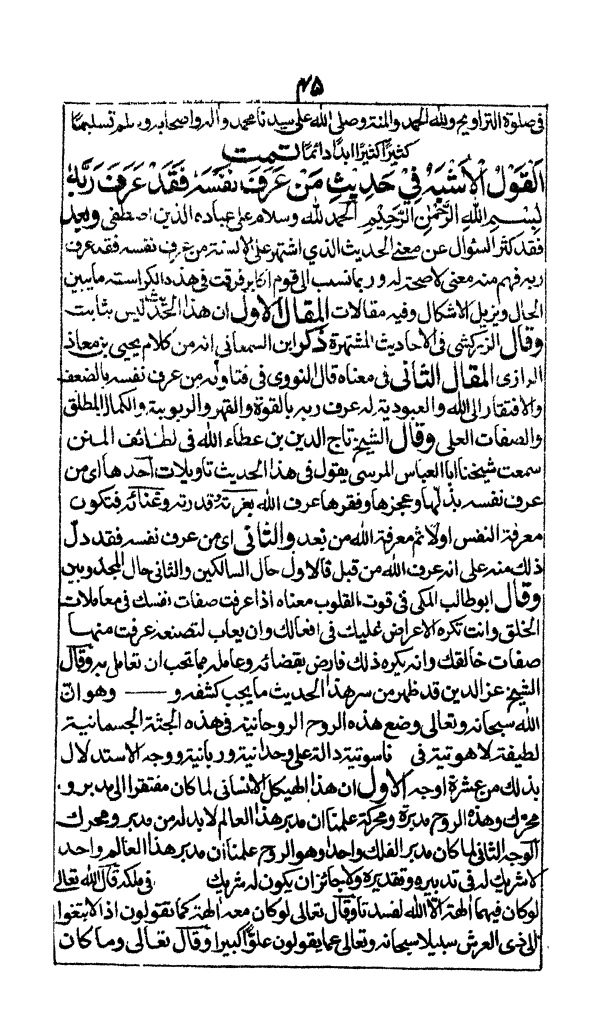 ۴۵
فی صلوة التراویح وللہ الحمد والمنۃ وصلی اللہ علی سیدنا محمد وآلہ واصحابہ وسلم تسلیمًا
کثیرًا کثیرًا ابدًا دائمًا تمت
اَلْقَوْلُ الْاَشْبَہُ فِیْ حَدِیْثِ مَنْ عَرَفَ نَفْسَہٗ فَقَدْ عَرَفَ رَبَّہٗ
بِسْمِ اللہِ الرَّحْمٰنِ الرَّحِیْمِ الحمد للہ وسلام علی عبادہ الذین اصطفی وبعد
فقد کثر السؤال عن معنی الحدیث الذی اشتھر علی الالسنۃ من عرف نفسہ فقد عرف
ربہ فھم منہ معنی لا صحۃ لہ وربما نسب الی قوم اکابر فرقت فی ھذہ الکراسۃ ما یبین
الحال ویزیل الاشکال وفیہ مقالات المقال الاول ان ھذا الحدیث لیس بثابت
وقال الزرکشی فی الاحادیث المشتھرۃ ذکر ابن السمعانی انہ من کلام یحیی بن معاذ
الرازی المقال الثانی فی معناہ قال النووی فی فتاوٰیہ من عرف نفسہ بالضعف
والافتقار الی اللہ والعبودیۃ لہ عرف ربہ بالقوۃ والقھر والربوبیۃ والکمال المطلق
والصفات العلی وقال الشیخ تاج الدین بن عطاء اللہ فی لطائف المنن
سمعت شیخنا ابا العباس المرسی یقول فی ھذا الحدیث تاویلات احدھا ای من
عرف نفسہ بذلھا وعجزھا وفقرھا عرف اللہ بعزتہ وقدرتہ وغنائہ فتکون
معرفۃ النفس اولا ثم معرفۃ اللہ من بعد والثانی ای من عرف نفسہ فقد دل
ذلک منہ علی انہ عرف اللہ من قبل فالاول حال السالکین والثانی حال المجذوبین
وقال ابو طالب المکی فی قوت القلوب معناہ اذا عرفت صفات نفسک فی معاملات
الخلق وانت تکرہ الاعراض علیک فی افعالک وان یعاب لتصنعہ عرفت منھا
صفات خالقک وانہ یکرہ ذلک فارض بقضائہ وعاملہ مما تحب ان تعامل بہ وقال
الشیخ عز الدین قد ظھر من سر ھذا الحدیث ما یجب کشفہ و — وھو ان
اللہ سبحانہ وتعالی وضع ھذہ الروح الروحانیۃ فی ھذہ الجثۃ الجسمانیۃ
لطیفۃ لاھوتیۃ فی ناسوتیۃ دالۃ علی وحدانیۃ وربانیۃ ووجہ الاستدلال
بذلک من عشرۃ اوجہ الاول ان ھذا الھیکل الانسانی لما کان مفتقرا الی مدبر و
محرک وھذہ الروح مدبرۃ ومحرکۃ علمنا ان مدبر ھذا العالم لا بد لہ من مدبر ومحرک
الوجہ الثانی لما کان مدبر الفلک واحدا وھو الروح علمنا ان مدبر ھذا العالم واحد
لا شریک لہ فی تدبیرہ وتقدیرہ ولا جائز ان یکون لہ شریک فی ملکہ قال اللہ تعالی
لو کان فیھما آلھۃ الا اللہ لفسدتا وقال تعالی لو کان معہ آلھۃ کما تقولون اذا لابتغوا
الی ذی العرش سبیلا سبحانہ وتعالی عما یقولون علوًا کبیرا وقال تعالی وما کان